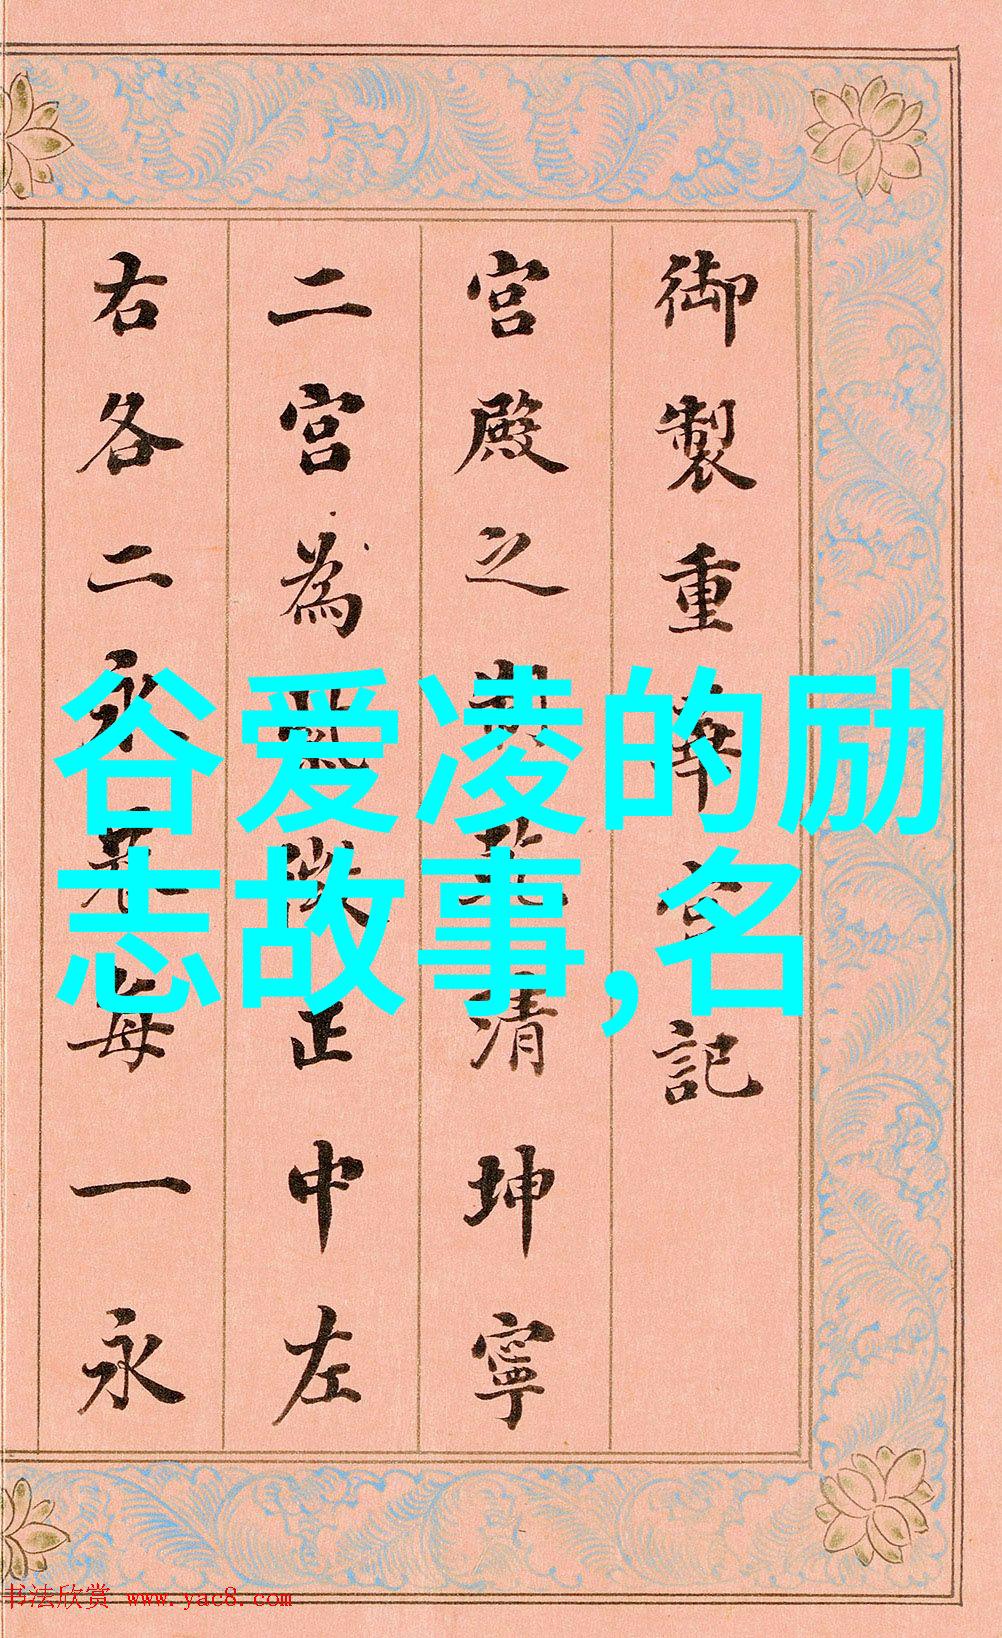 御製重華宮記
宮殿之乾清坤寧
二宮為正中左
右各二永巷每一永
谷爱凌的励
志故事,名
书法欣赏 www.yac8.com